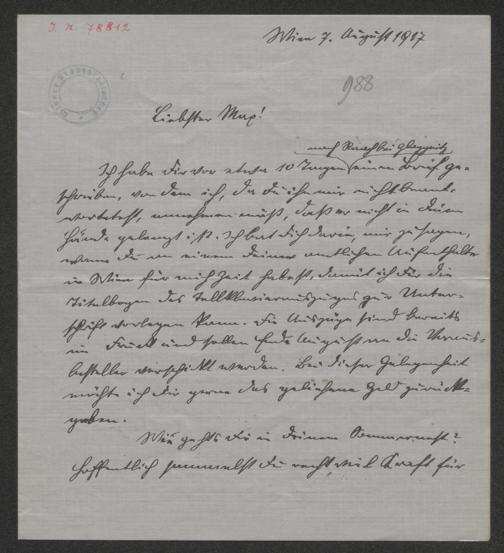 J. N. 78812
Wien 7. August 1917
988
Liebster Max!
nach Raach bei Gloggnitz
Ich habe Dir vor etwa 10 Tagen einen Brief ge-
schrieben, von dem ich, da Du ihn mir nicht beant-
wortetest, annehmen muß, daß er nicht in Deine
Hände gelangt ist. Ich bat Dich darin, mir zu sagen,
wann Du an einem Deiner amtlichen Aufenthalte
in Wien für mich Zeit habest, damit ich Dir die
Titelbogen des Klavierauszuges zur Unter-
schrift vorlegen kann. Die Auszüge sind bereits
im Druck und sollen Ende August an die Voraus-
besteller verschickt werden. Bei dieser Gelegenheit
möchte ich Dir gerne das geliehene Geld zurück-
geben.
Wie gehts Dir in Deinem Sommernest?
Hoffentlich sammelst Du recht viel Kraft für